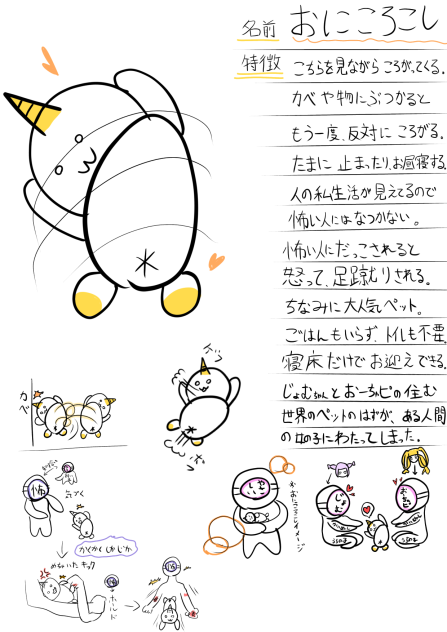 名前 おにころこし
特徴 こちらを見ながらころがってくる。
カベや物にぶつかると
もう一度、反対にころがる。
たまに止まったり、お昼寝する。
人の私生活が見えてるので
怖い人にはなつかない。
怖い人にだっこされると
怒って、足蹴りされる。
ちなみに大人気ペット。
ごはんもいらず、トイレも不要。
寝床だけでお迎えできる。
じょむちゃんとおーちゃピの住む
世界のペットのはずが、ある人間
の女の子にわたってしまった。
カベ
怖
気づく
かくかくしかじか
めちゃいたキック
ホールド
やさしい
じょむ